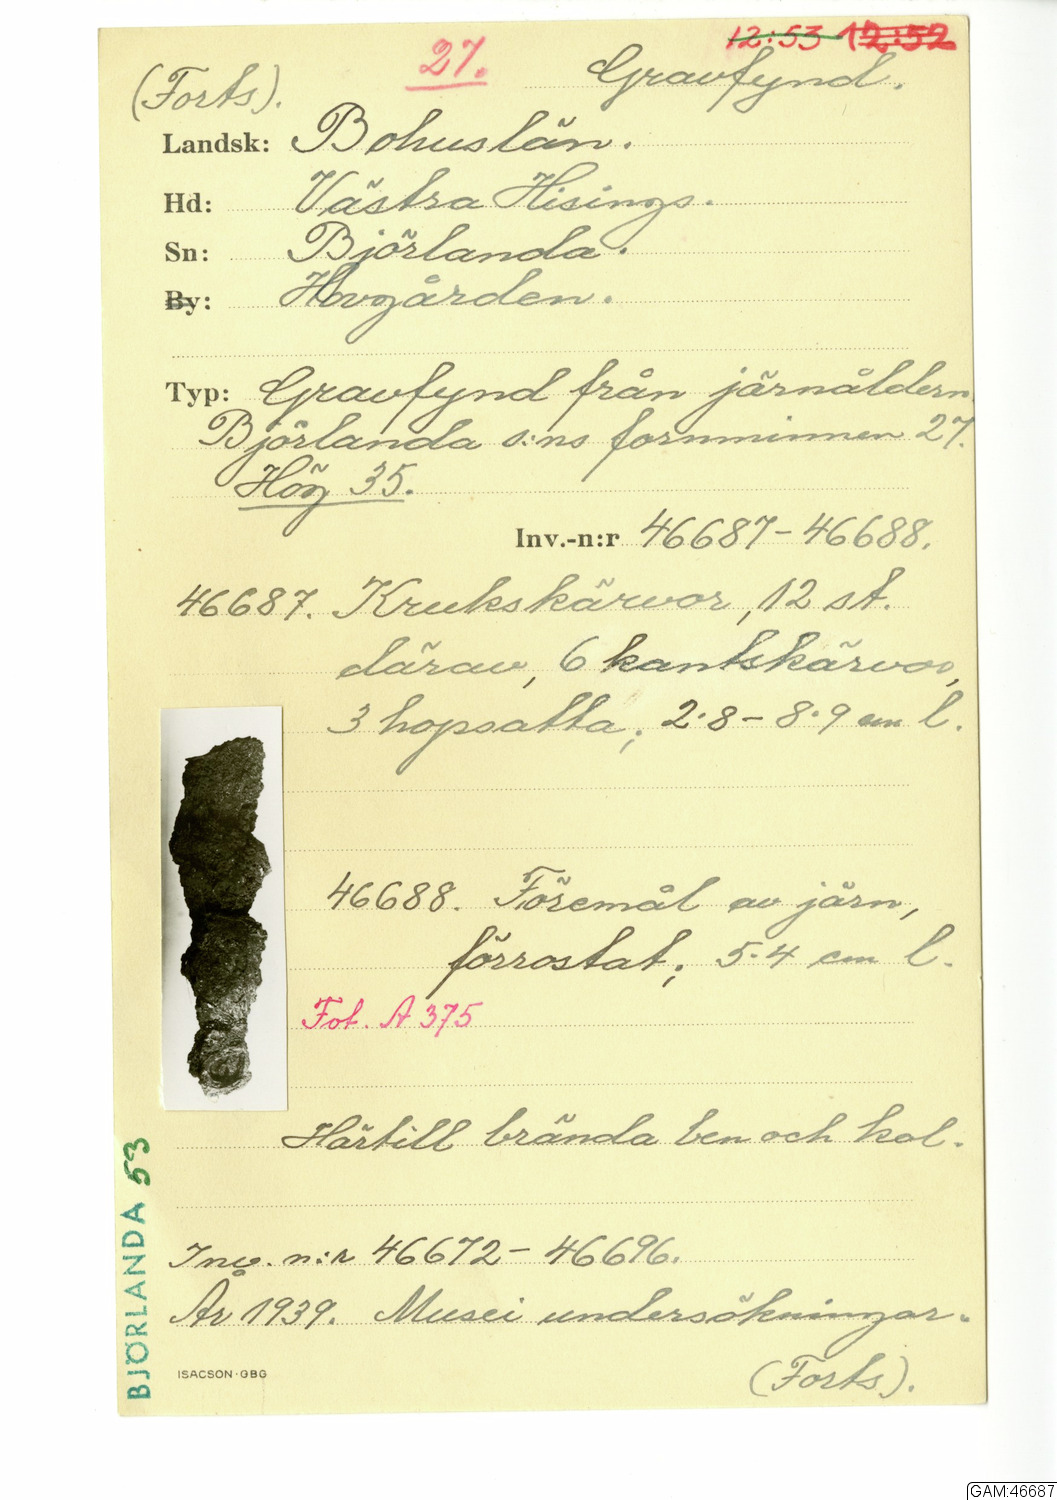 12:53 12:52
27.
Gravfynd.
(Forts).
Landsk: Bohuslän.
Hd: Västra Hisings.
Sn: Björlanda.
By: Hovgården.
Typ: Gravfynd från järnåldern
Björlanda s:ns fornminnen 27.
Hög 35.
Inv.-n:r 46687-46688.
46687. Krukskärvor, 12 st.
därav, 6 kantskärvor,
3 hopsatta; 2.8 - 8.9 cm l.
46688. Föremål av järn,
förrostat; 5.4 cm l.
Fot. A 375
Härtill brända ben och kol.
Inv. n:r 46672 - 46696.
År 1939. Musei undersökningar.
ISACSON·GBG
(Forts).
BJÖRLANDA 53
GAM:46687